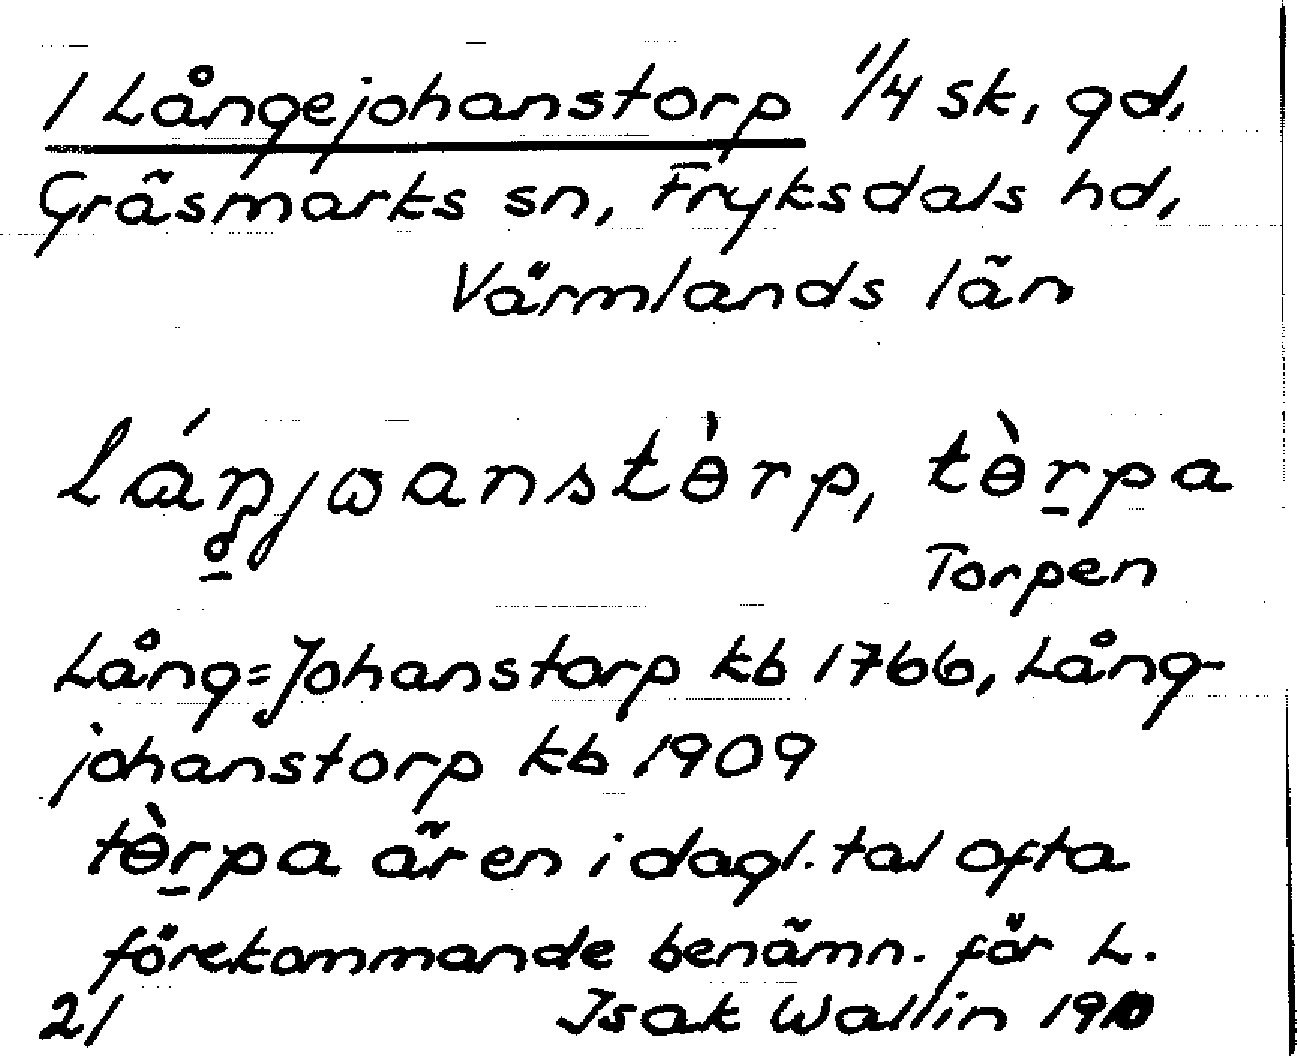 1 Långejohanstorp 1/4 sk, gd,
Gräsmarks sn, Fryksdals hd,
Värmlands län
tèr̲pa
Torpen
Lång=Johanstorp kb 1766, Lång-
johanstorp kb 1909
tèr̲pa är en i dagl. tal ofta
förekommande benämn. för L.
21 Isak Wallin 1910